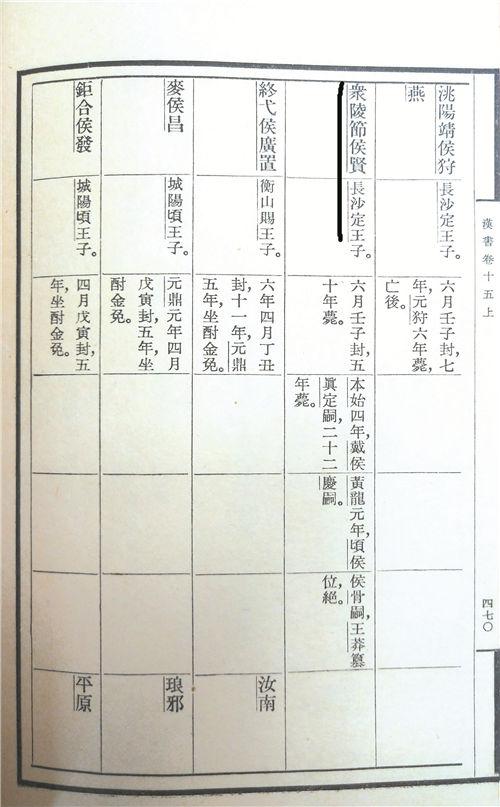 漢書卷十五上
四七〇
洮陽靖侯狩
燕
長沙定王子。
六月壬子封,七
年,元狩六年薨,
亡後。
衆陵節侯賢
長沙定王子。
六月壬子封,五
十年薨。
本始四年,戴侯
眞定嗣,二十二
年薨。
黃龍元年,頃侯
慶嗣。
侯骨嗣,王莽篡
位,絕。
終弋侯廣置
衡山賜王子。
六年四月丁丑
封,十一年,元鼎
五年,坐酎金免。
汝南
麥侯昌
城陽頃王子。
元鼎元年四月
戊寅封,五年,坐
酎金免。
琅邪
鉅合侯發
城陽頃王子。
四月戊寅封,五
年,坐酎金免。
平原